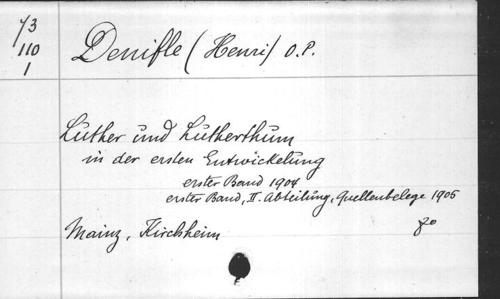 73
110
1
Denifle (Henri) O.P.
Luther und Lutherthum
in der ersten Entwickelung
erster Band 1904
erster Band, II. Abteilung, Quellenbelege 1905
Mainz, Kirchheim